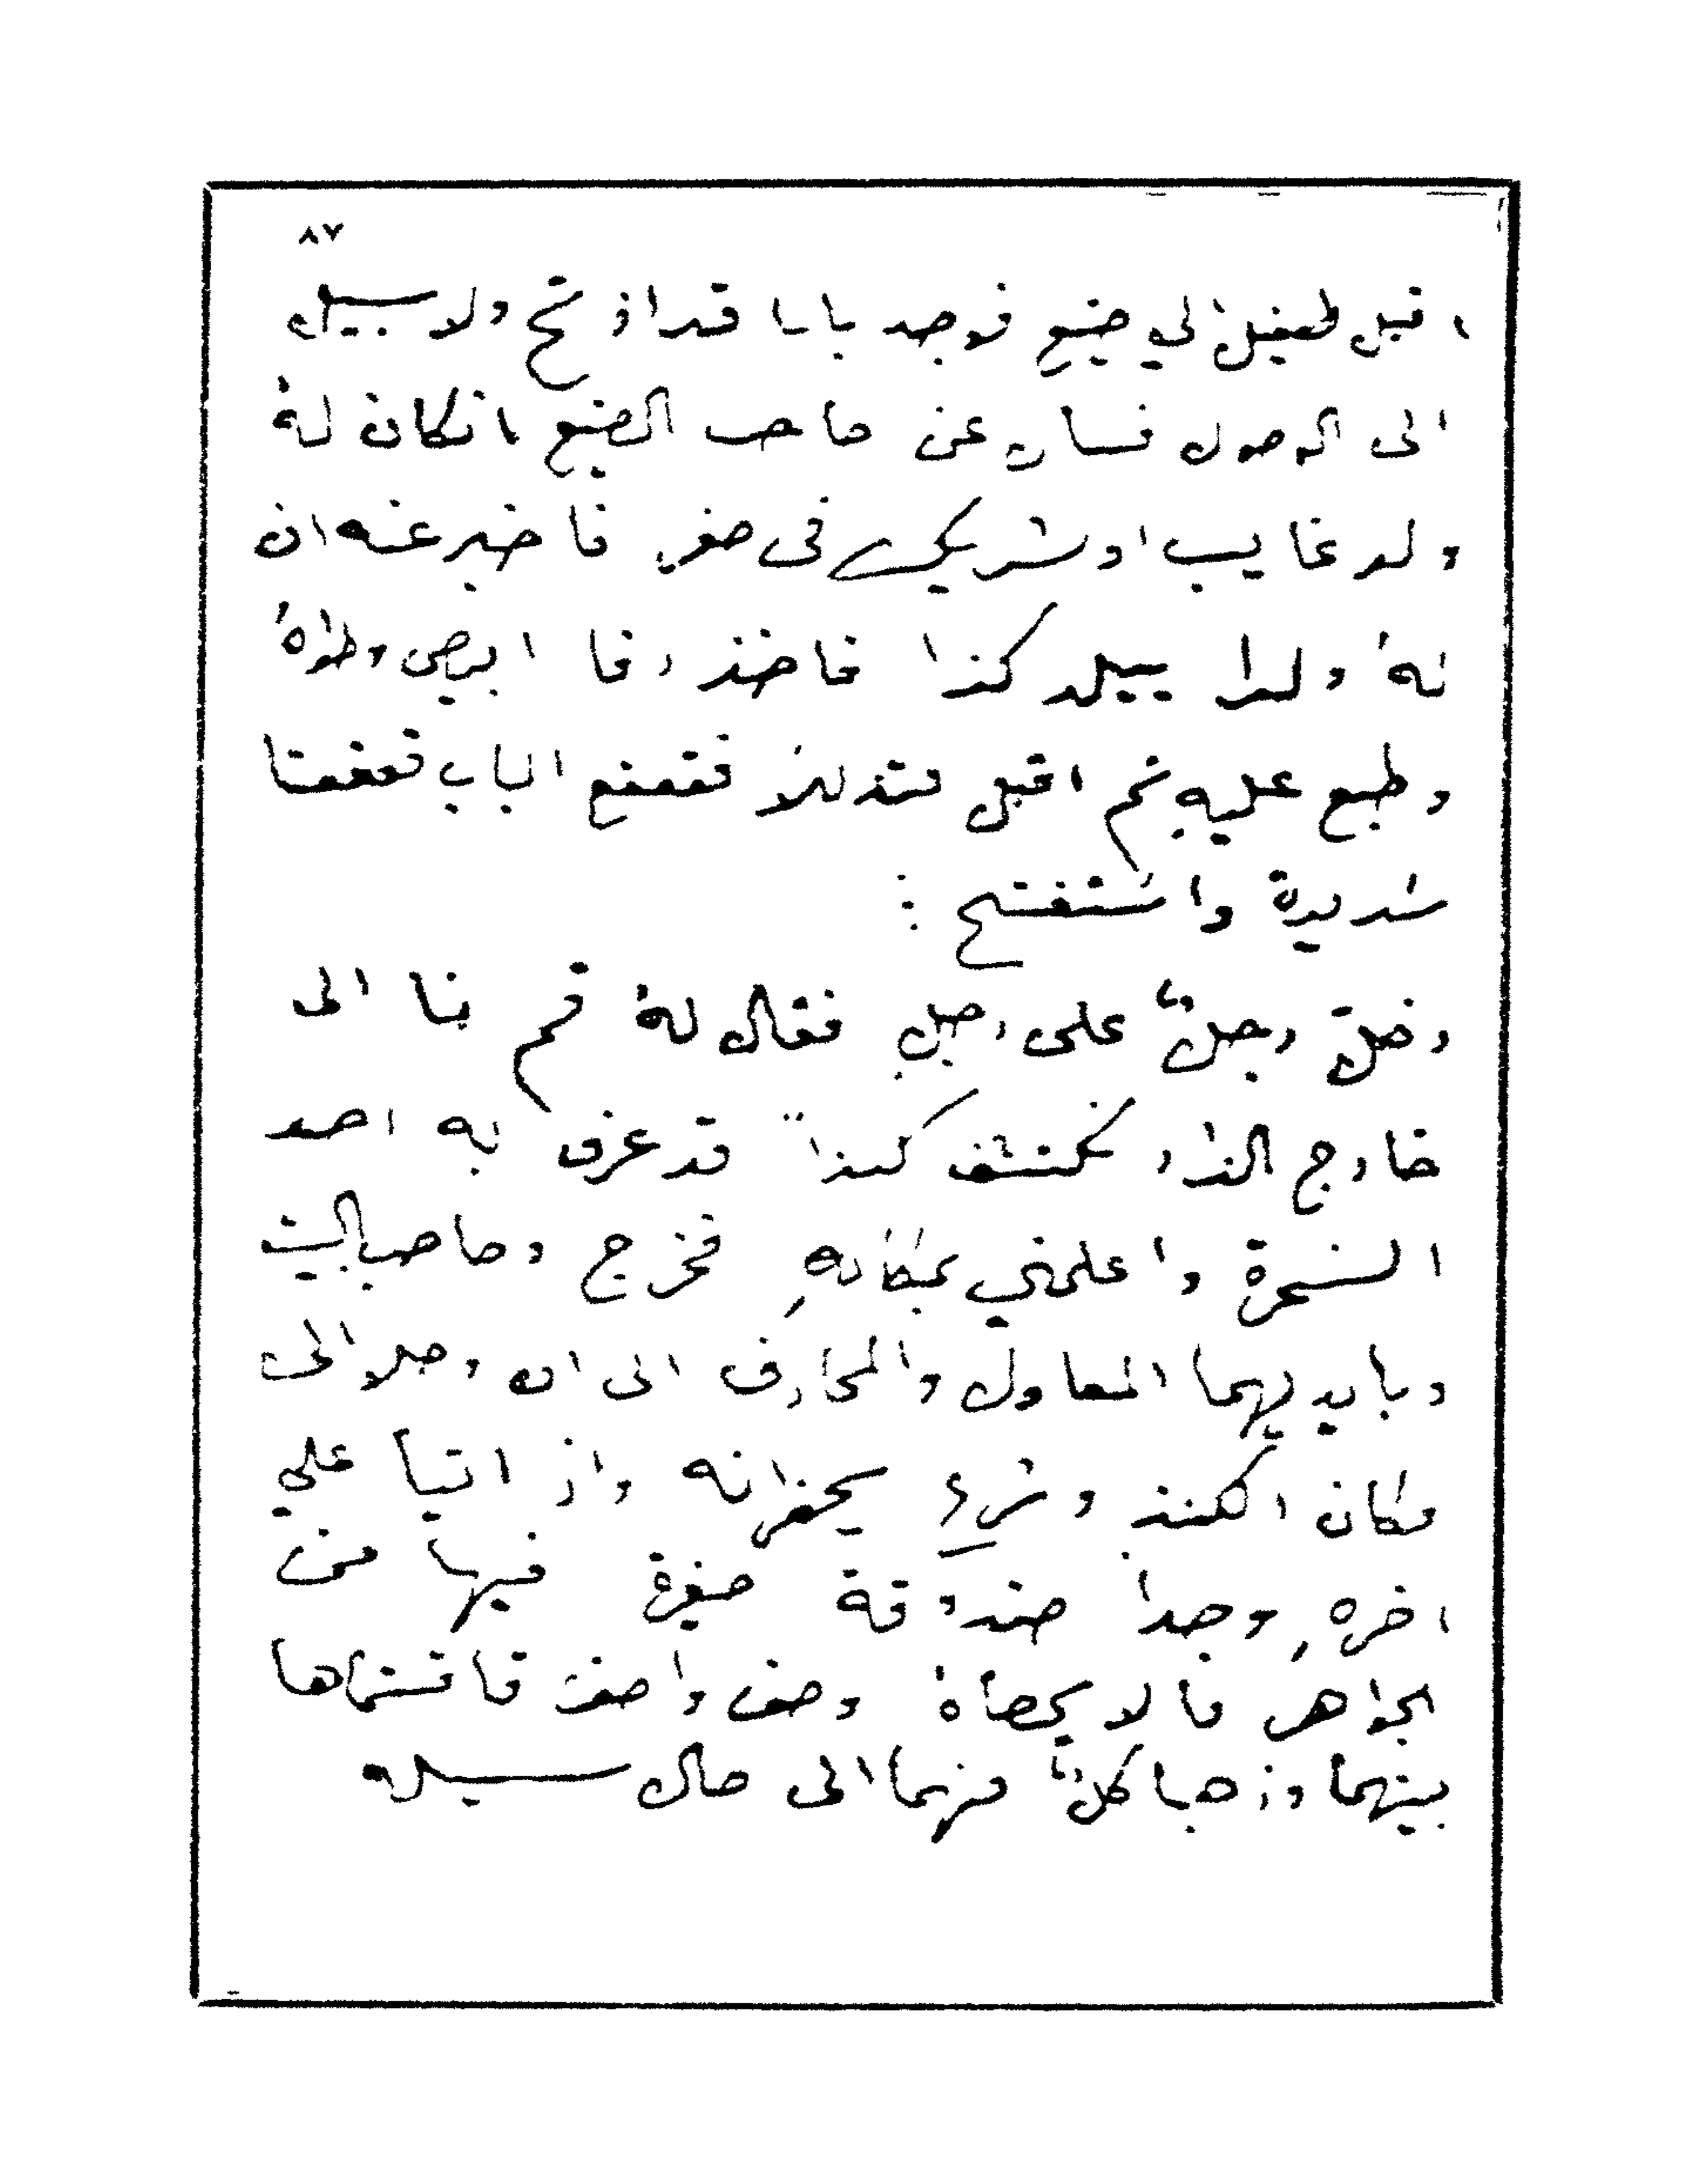 ٨٧
اقبل طفيل الي ضيع فوجد بابا قد ارتج ولا سبيل
الى الوصول فسال عن صاحب الضيع ان كان له
ولد غايب او شريك في صغر فاخبر عنه ان
له ولدا ببلد كذا فاخذ رقا ابيض وطواه
وطبع عليه ثم اقبل متذللا فقعقع الباب قعقعتا
شديدة واستفتح :
دخل رجلٌ على رجلٍ فقال له قم بنا الى
خارج الدار نكشف كنزاً قد عرف به احد
السحرة واعلمني بمكانهِ فخرج وصاحب البيت
وبايديهما المعاول والمجارف الى ان وصلا الى
مكان الكنز وشرع يحفرانه واذ اتيا علي
اخرهِ وجدا صندوقة صغيرة فيها من
الجواهر ما لا يحصاهُ وصف واصف فاقتسماها
بينهما وذهبا كلٌ منهما الى حال سبيله